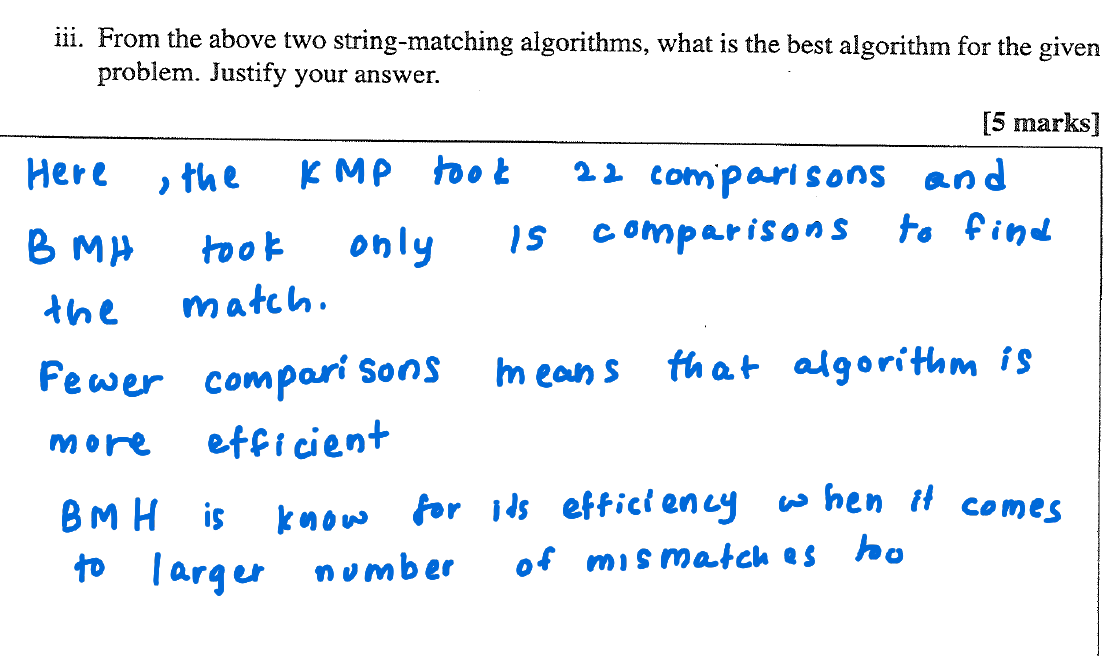 iii. From the above two string-matching algorithms, what is the best algorithm for the given
problem. Justify your answer.
[5 marks]
Here , the KMP took 22 comparisons and
BMH took only 15 comparisons to find
the match.
Fewer comparisons means that algorithm is
more efficient
BMH is know for its efficiency when it comes
to larger number of mismatches too